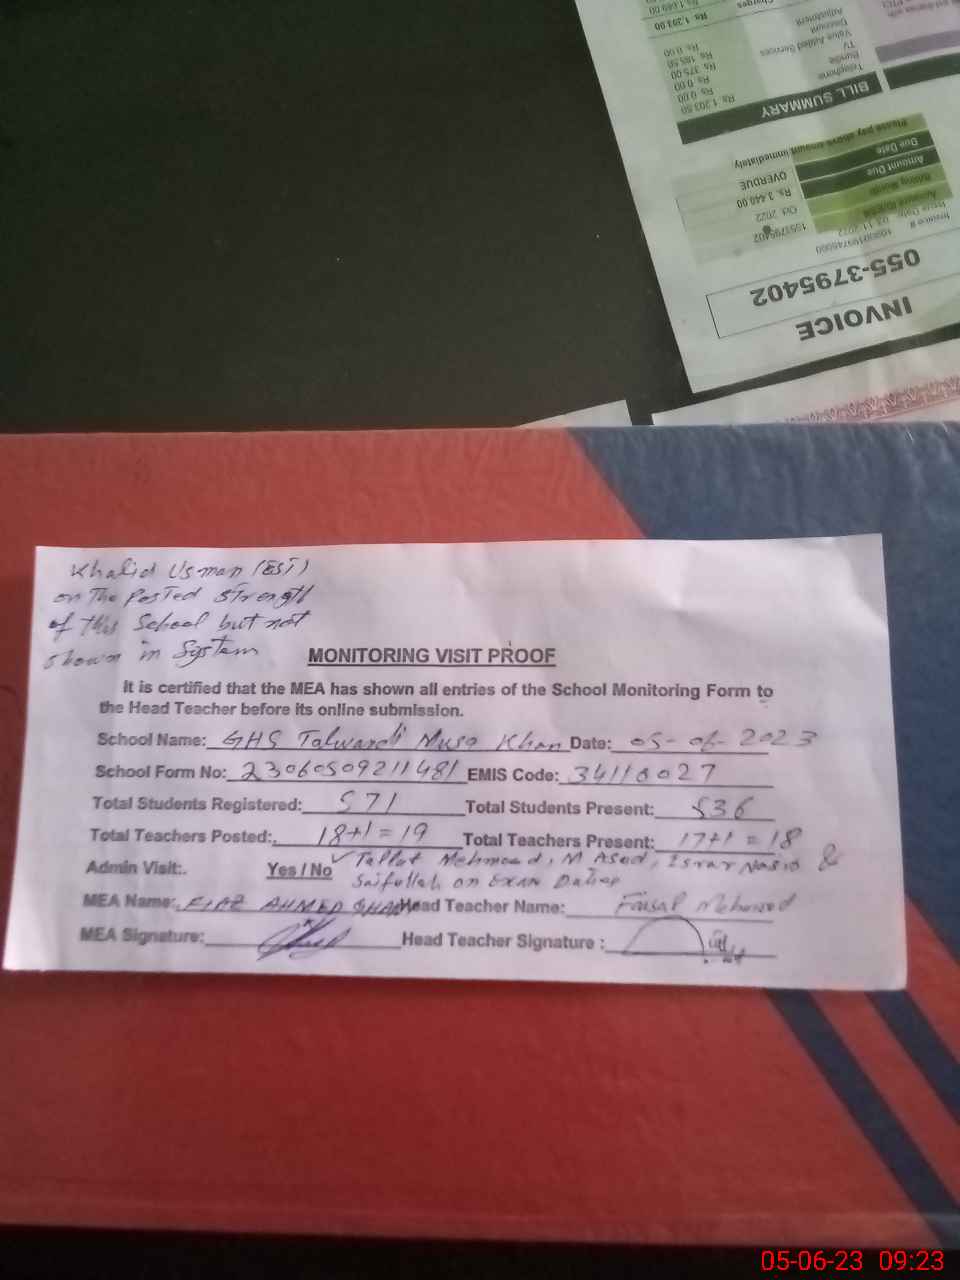 Khalid Usman (EST)
on The Posted Strength
of this School but not
shown in System
MONITORING VISIT PROOF
It is certified that the MEA has shown all entries of the School Monitoring Form to
the Head Teacher before its online submission.
School Name: GHS Talwandi Musa Khan Date: 05-06-2023
School Form No: 23060509211481 EMIS Code: 34110027
Total Students Registered: 571 Total Students Present: 536
Total Teachers Posted: 18+1=19 Total Teachers Present: 17+1=18
Admin Visit:. Yes / No ✓ Tallat Mehmood, M Asad, Israr &
Saifullah on Exam
MEA Name: FIAZ AHMED Head Teacher Name: Faisal Mehmood
MEA Signature: Head Teacher Signature :
INVOICE
055-3795402
Invoice #
Issue Date: 03 11 2022
1553795402
Billing Month Oct 2022
Amount Due Rs. 3,440.00
Due Date OVERDUE
Please pay above amount immediately
BILL SUMMARY
Telephone Rs. 1,203.50
Bundle Rs. 0.00
TV Rs. 0.00
Value Added Services Rs. 375.00
Discount Rs. 185.50
Adjustment Rs. 0.00
Rs. 1,393.00
05-06-23 09:23